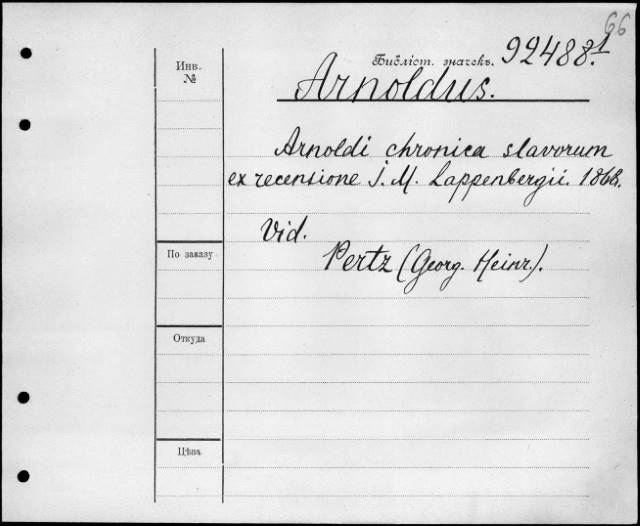 66
Инв.
№
Библіот. значекъ. 92488.1
Arnoldus.
Arnoldi chronica slavorum
ex recensione J. M. Lappenbergii. 1868.
Vid.
Pertz (Georg. Heinr.).
По заказу
Откуда
Цѣна